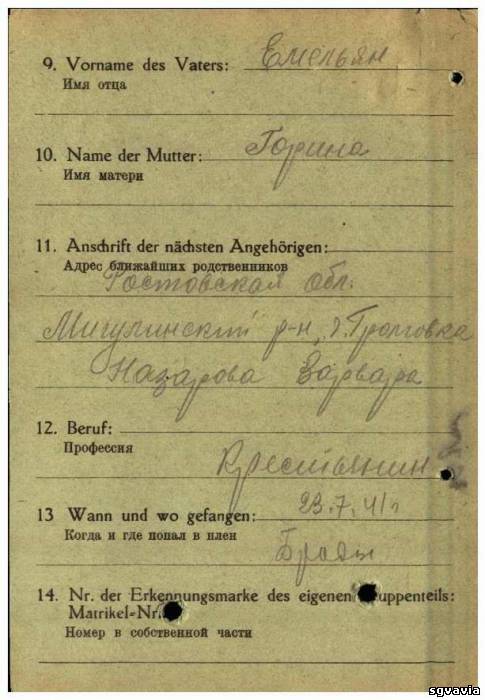 9. Vorname des Vaters: Емельян
Имя отца
10. Name der Mutter: Горина
Имя матери
11. Anschrift der nächsten Angehörigen:
Адрес ближайших родственников
Ростовская обл.
Мигулинский р-н,
Назарова Варвара
12. Beruf:
Профессия
Крестьянин
13 Wann und wo gefangen: 23.7.41г
Когда и где попал в плен
Броды
14. Nr. der Erkennungsmarke des eigenen uppenteils:
Matrikel-Nr.
Номер в собственной части
sgvavia